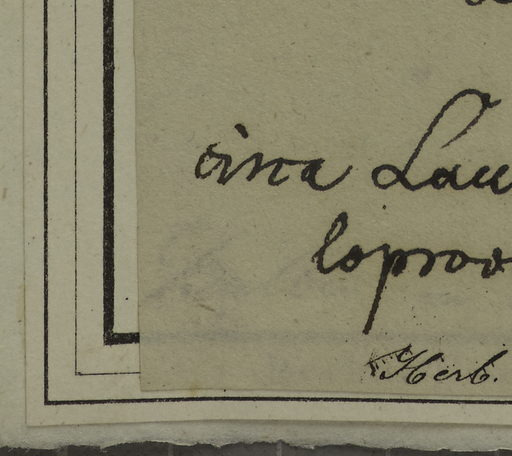 circa Lau
loproo
Herb.